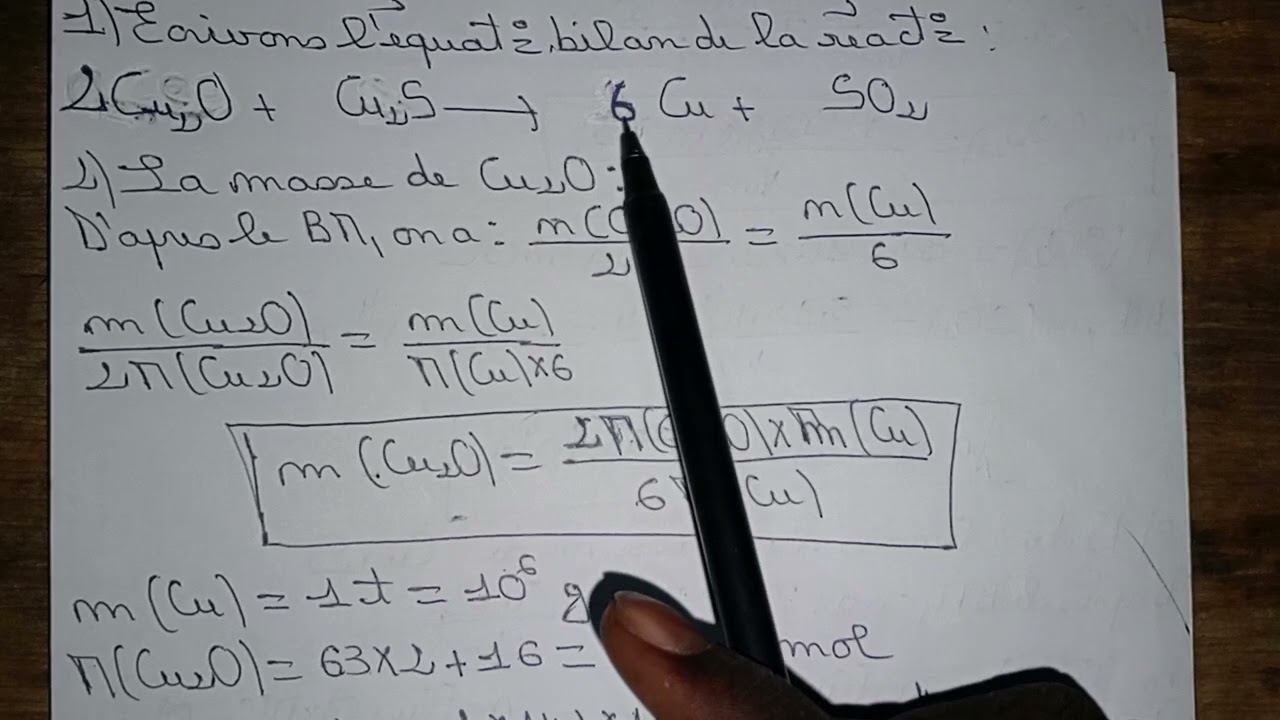 1) Ecrivons l'équat°, bilan de la réact° :
2Cu₂O + Cu₂S ⟶ 6 Cu + SO₂
2) La masse de Cu₂O :
D'apres le BM, on a : n(C O)/2 = n(Cu)/6
m(Cu₂O)/2M(Cu₂O) = m(Cu)/M(Cu)×6
m(Cu₂O) = 2M(C O)×m(Cu)/6 Cu)
m(Cu) = 1t = 10⁶ g
M(Cu₂O) = 63×2+16 = mol